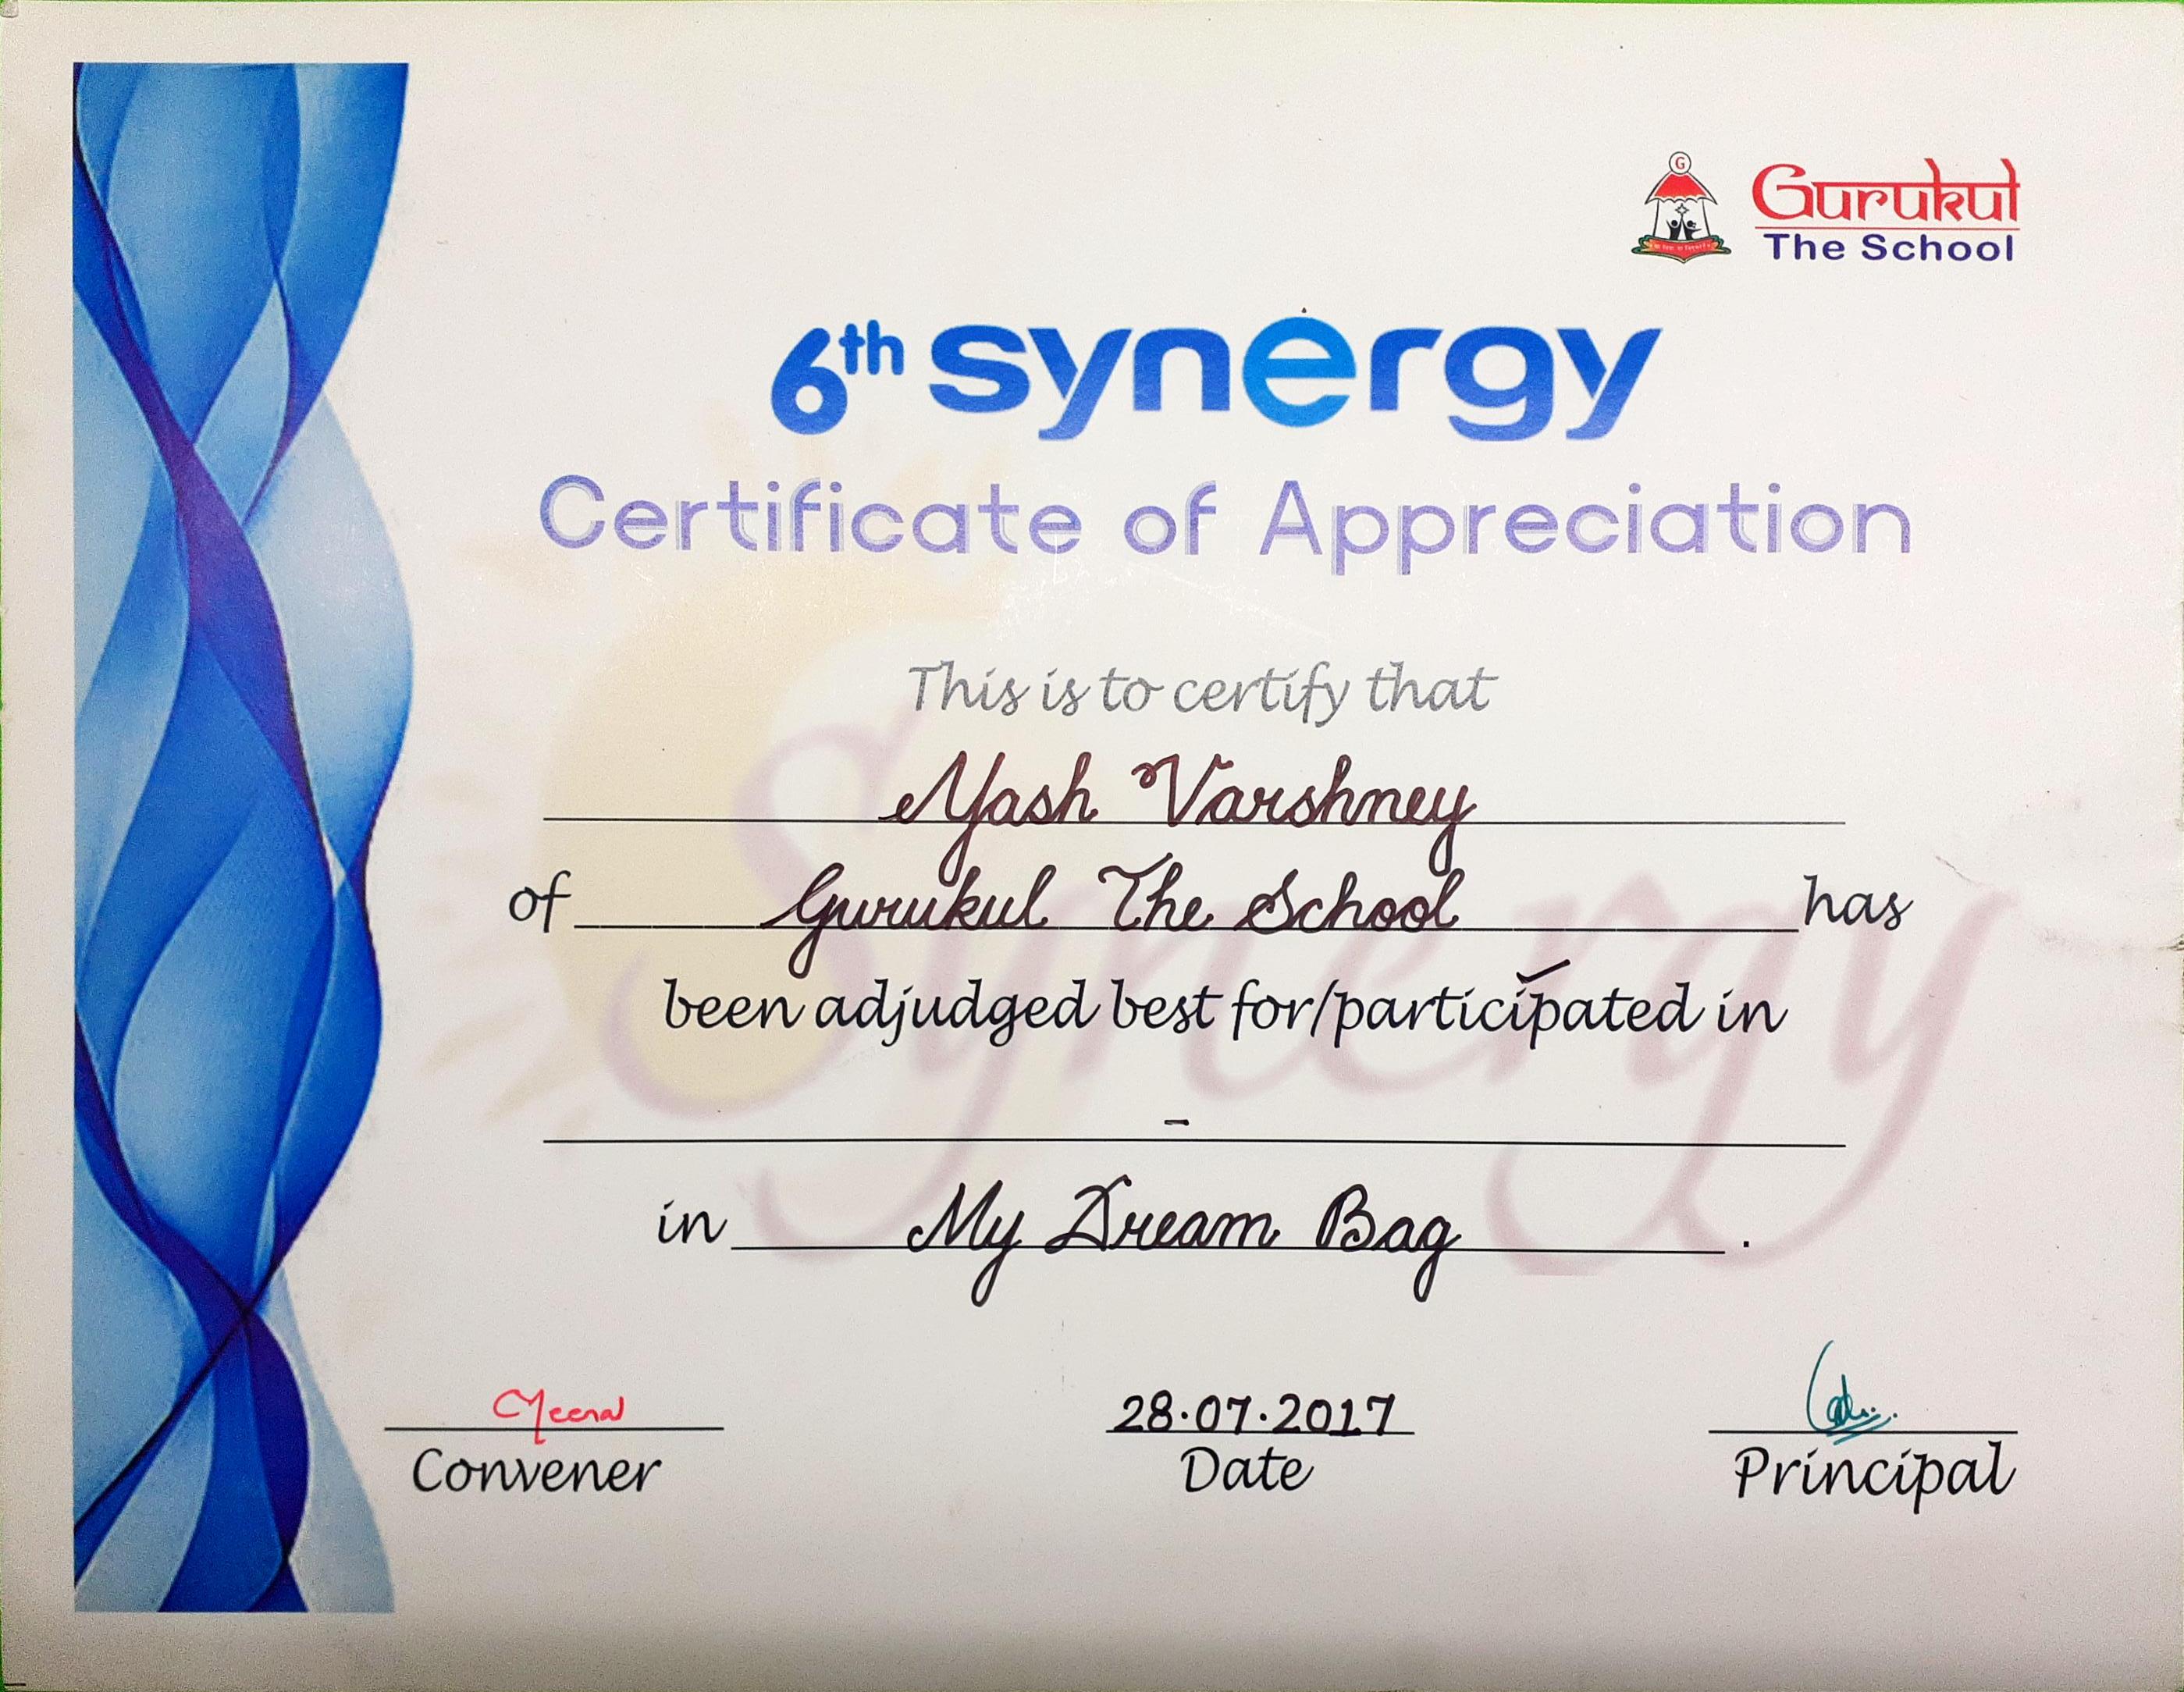 G
Gurukul
The School
6th synergy
Certificate of Appreciation
This is to certify that
Yash Varshney
of Gurukul The School has
been adjudged best for/participated in
-
in My Dream Bag .
28.07.2017
Convener Date Principal
Synergy